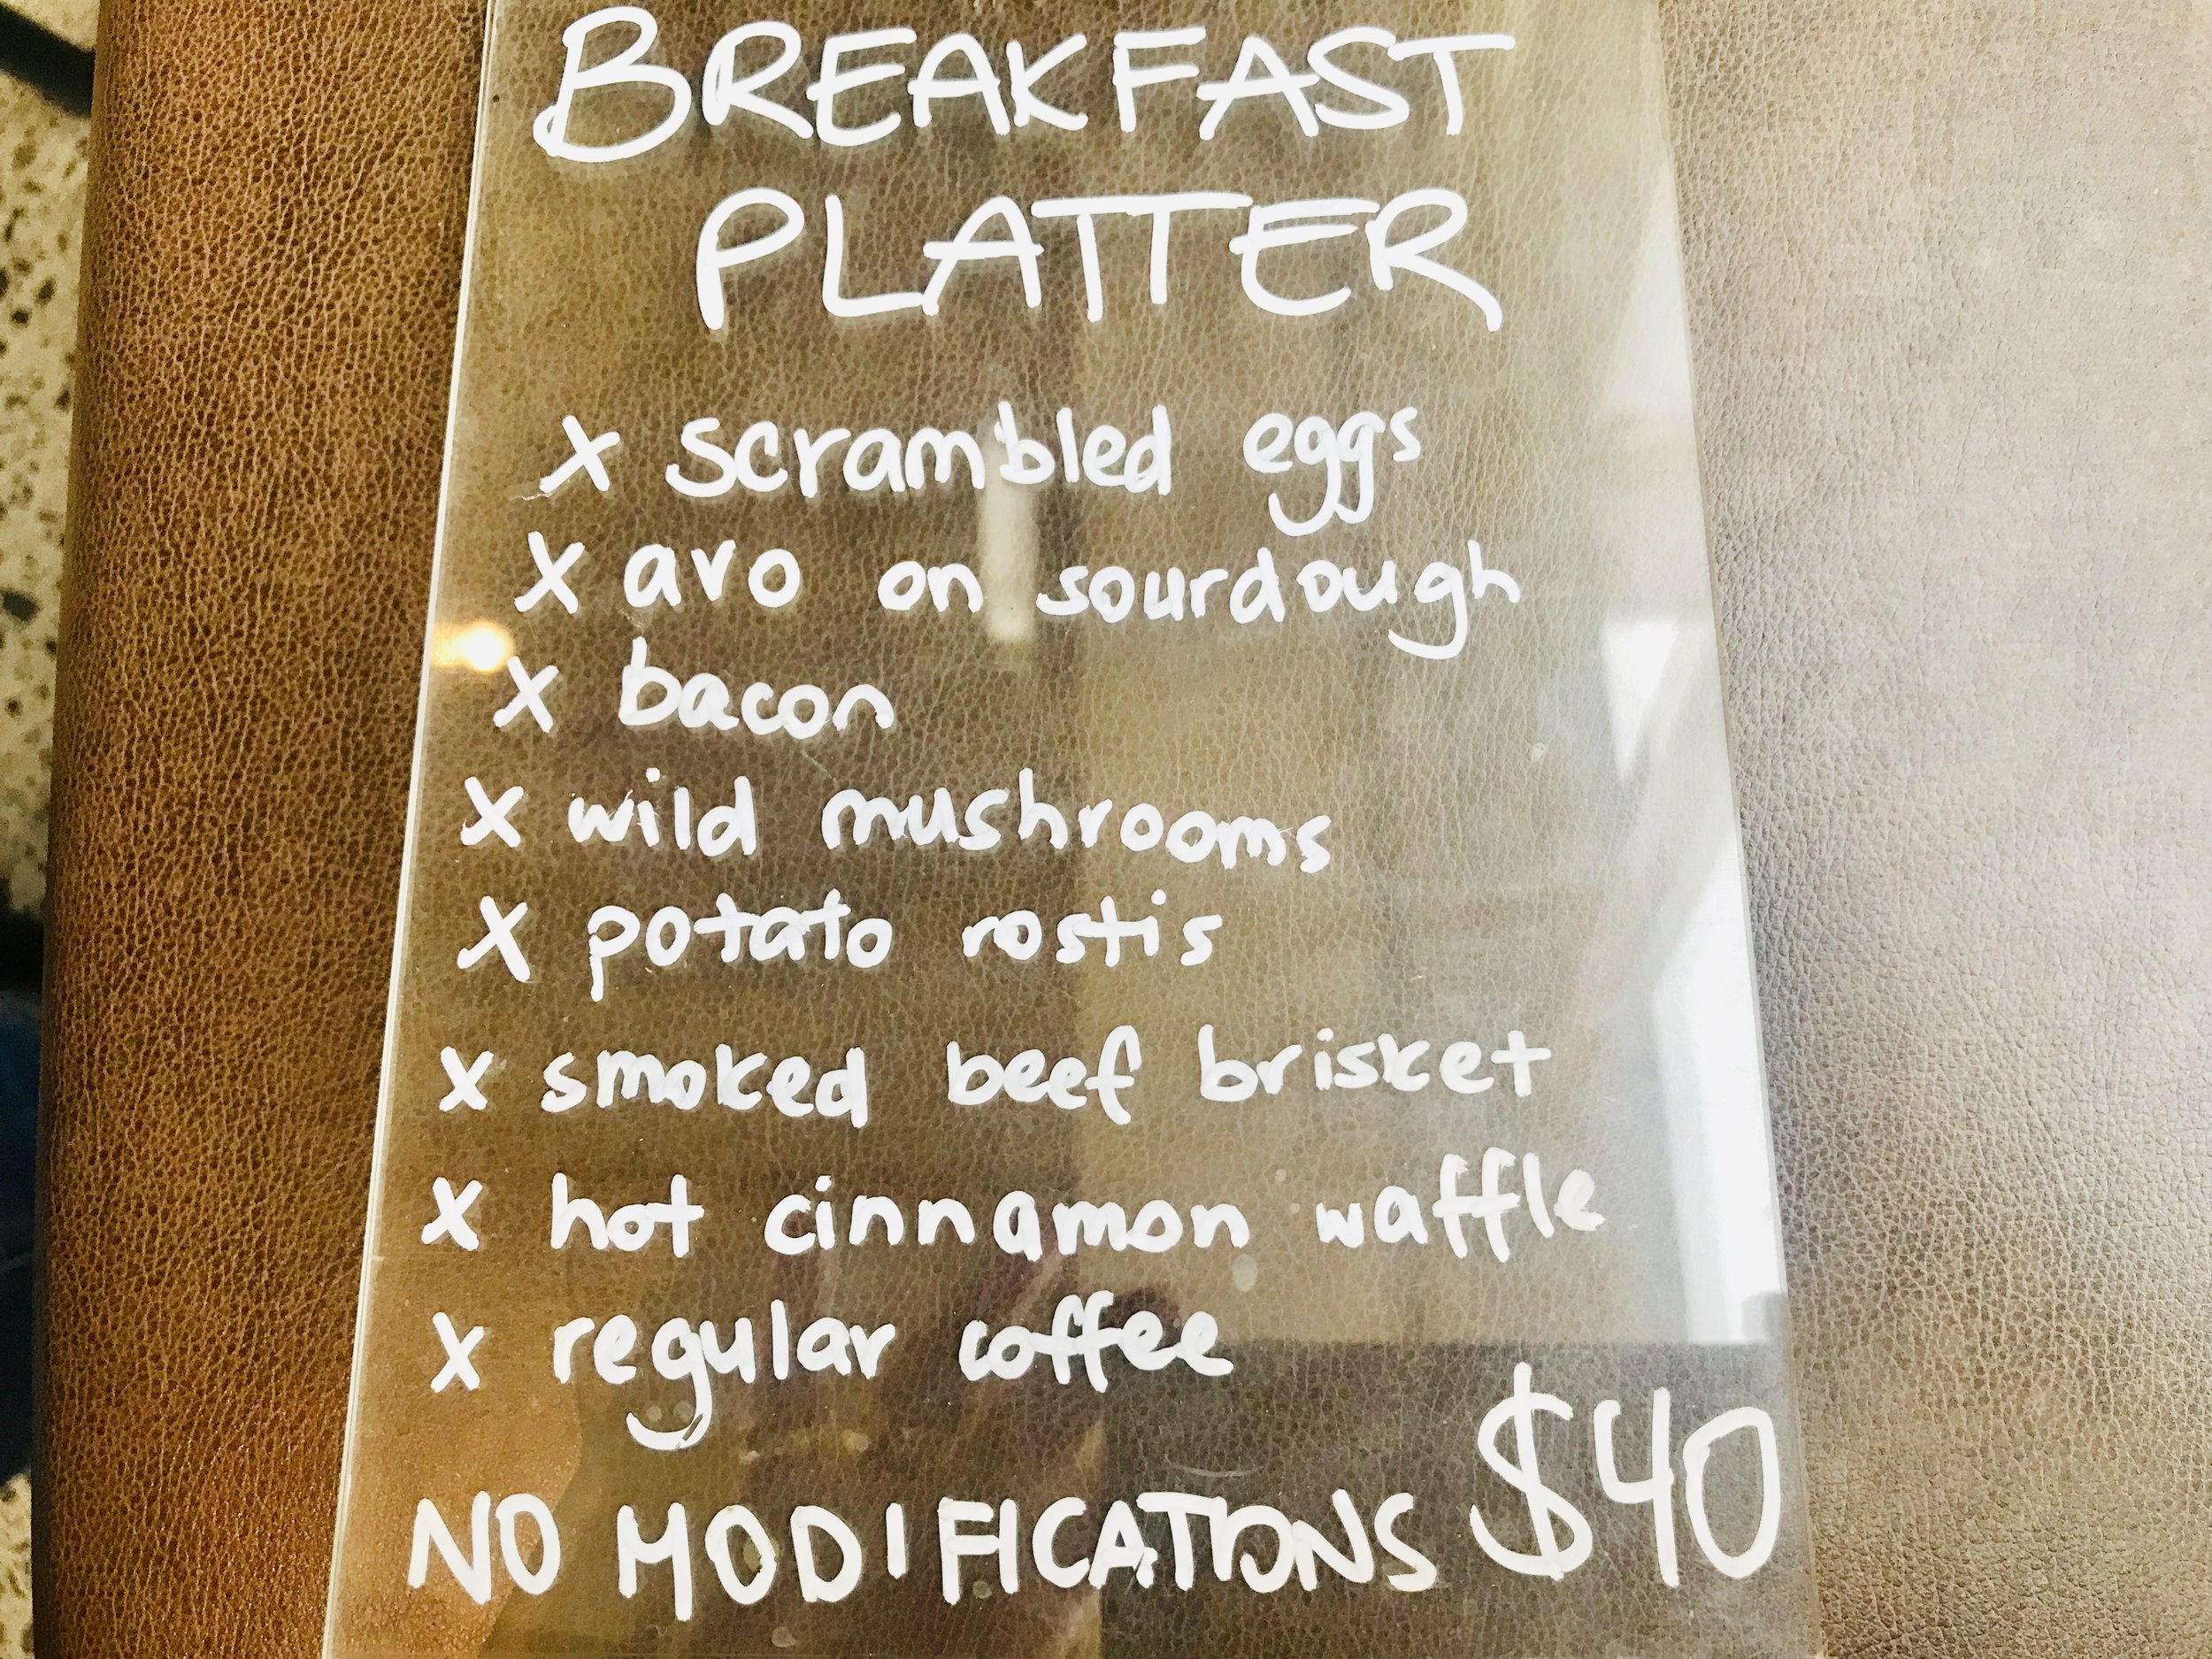 BREAKFAST
PLATTER
x scrambled eggs
x avo on sourdough
x bacon
x wild mushrooms
x potato rostis
x smoked beef brisket
x hot cinnamon waffle
x regular coffee
NO MODIFICATIONS $40